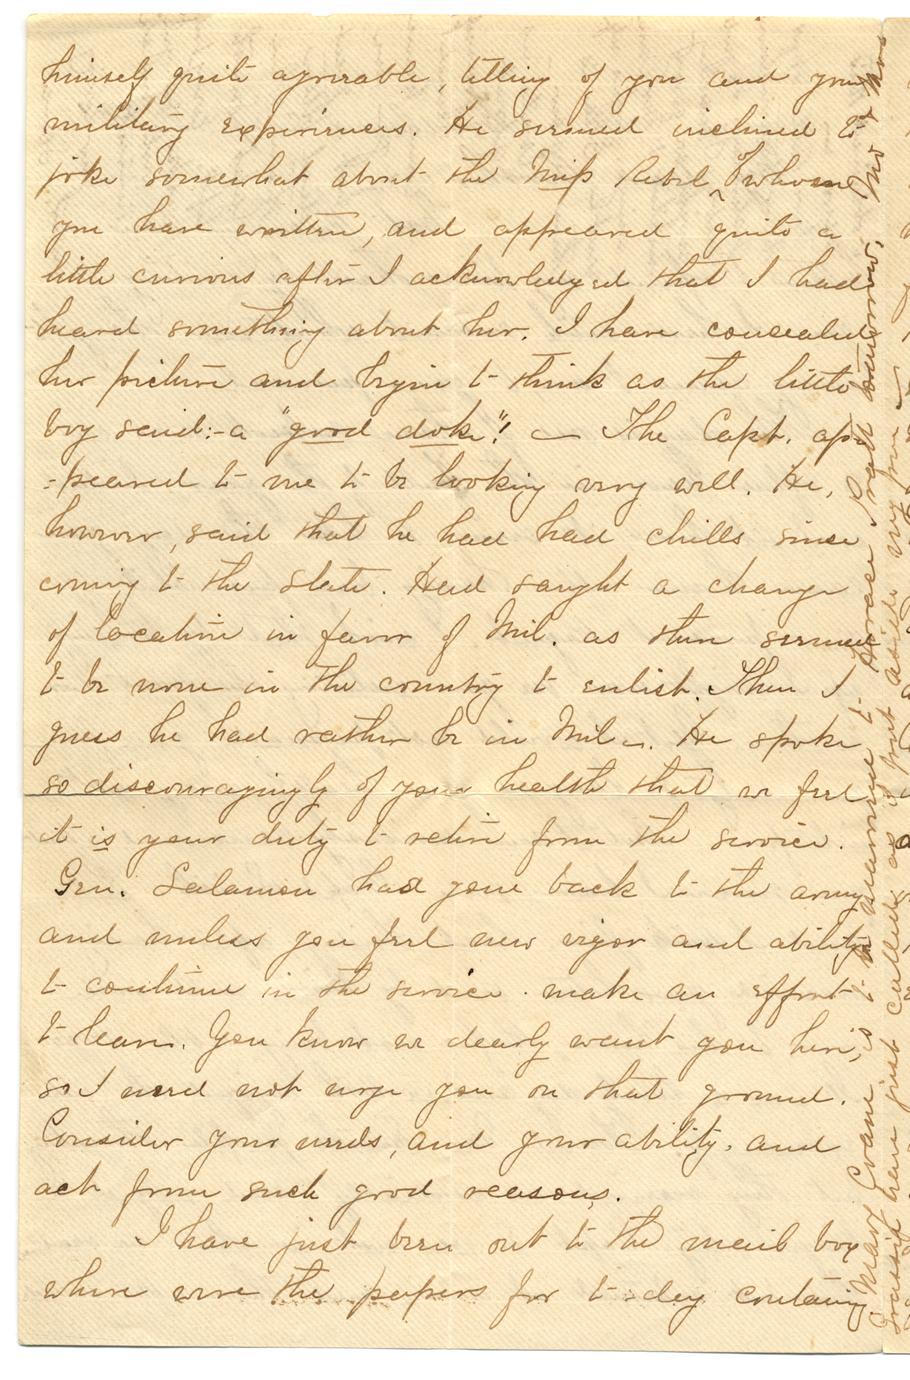 himself quite agreeable, telling of you and your
military experiences. He seemed inclined to
joke somewhat about the Miss Rebel ^of whom
you have written, and appeared quite a
little curious after I acknowledged that I had
heard something about her. I have concealed
her picture and begin to think as the little
boy said:- a "good doke"! — The Capt. ap-
-peared to me to be looking very well. He,
however, said that he had had chills since
coming to the state. Had sought a change
of location in favor of Mil. as there seemed
to be none in the country to enlist. Then I
guess he had rather be in Mil—. He spoke
so discouragingly of your health that we feel
it is your duty to retire from the service.
Gen. Salamon has gone back to the army
and unless you feel new vigor and ability
to continue in the service - make an effort
to leave. You know we dearly want you here,
so I need not urge you on that ground.
Consider your needs, and your ability, and
act from such good reasons.
I have just been out to the mail box
where were the papers for to-day containing
Mary Evans is to be married to Horace Pratt tomorrow, Mr & Mrs
have just called as I put aside my pen —